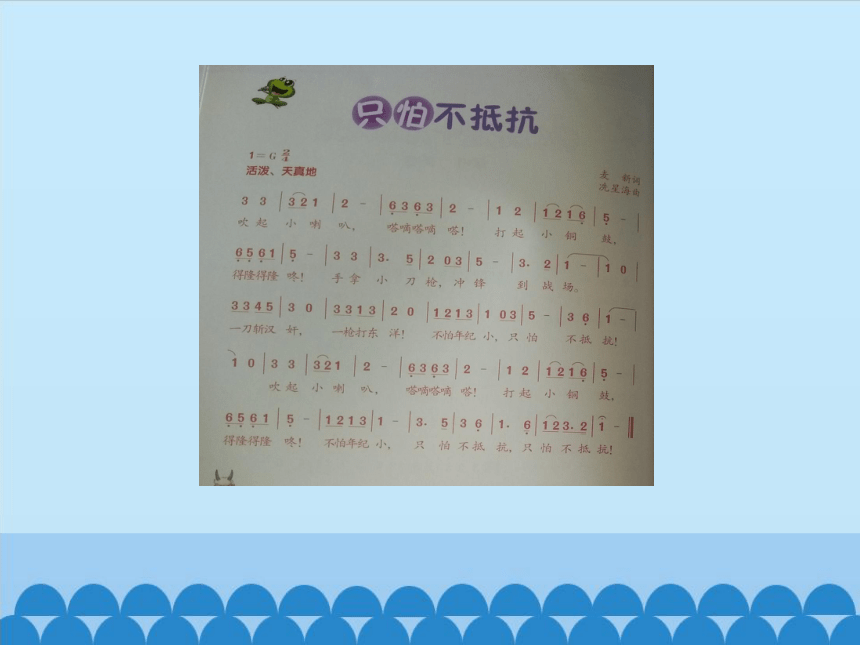 只怕不抵抗
1=G 2/4
活泼、天真地
麦 新词
冼星海曲
3 3 | 3 2 1 | 2 - | 6 3 6 3 | 2 - | 1 2 | 1 2 1 6 | 5 - |
吹 起 小 喇 叭, 嗒嘀嗒嘀 嗒! 打 起 小 铜 鼓,
6 5 6 1 | 5 - | 3 3 | 3. 5 | 2 0 3 | 5 - | 3. 2 | 1 - | 1 0 |
得隆得隆 咚! 手 拿 小 刀 枪, 冲 锋 到 战 场。
3 3 4 5 | 3 0 | 3 3 1 3 | 2 0 | 1 2 1 3 | 1 0 3 | 5 - | 3 6 | 1 - |
一刀斩汉 奸, 一枪打东 洋! 不怕年纪 小, 只 怕 不 抵 抗!
1 0 | 3 3 | 3 2 1 | 2 - | 6 3 6 3 | 2 - | 1 2 | 1 2 1 6 | 5 - |
吹 起 小 喇 叭, 嗒嘀嗒嘀 嗒! 打 起 小 铜 鼓,
6 5 6 1 | 5 - | 1 2 1 3 | 1 - | 3. 5 | 3 6 | 1. 6 | 1 2 3. 2 | 1 - ‖
得隆得隆 咚! 不怕年纪 小, 只 怕 不 抵 抗, 只 怕 不 抵 抗!